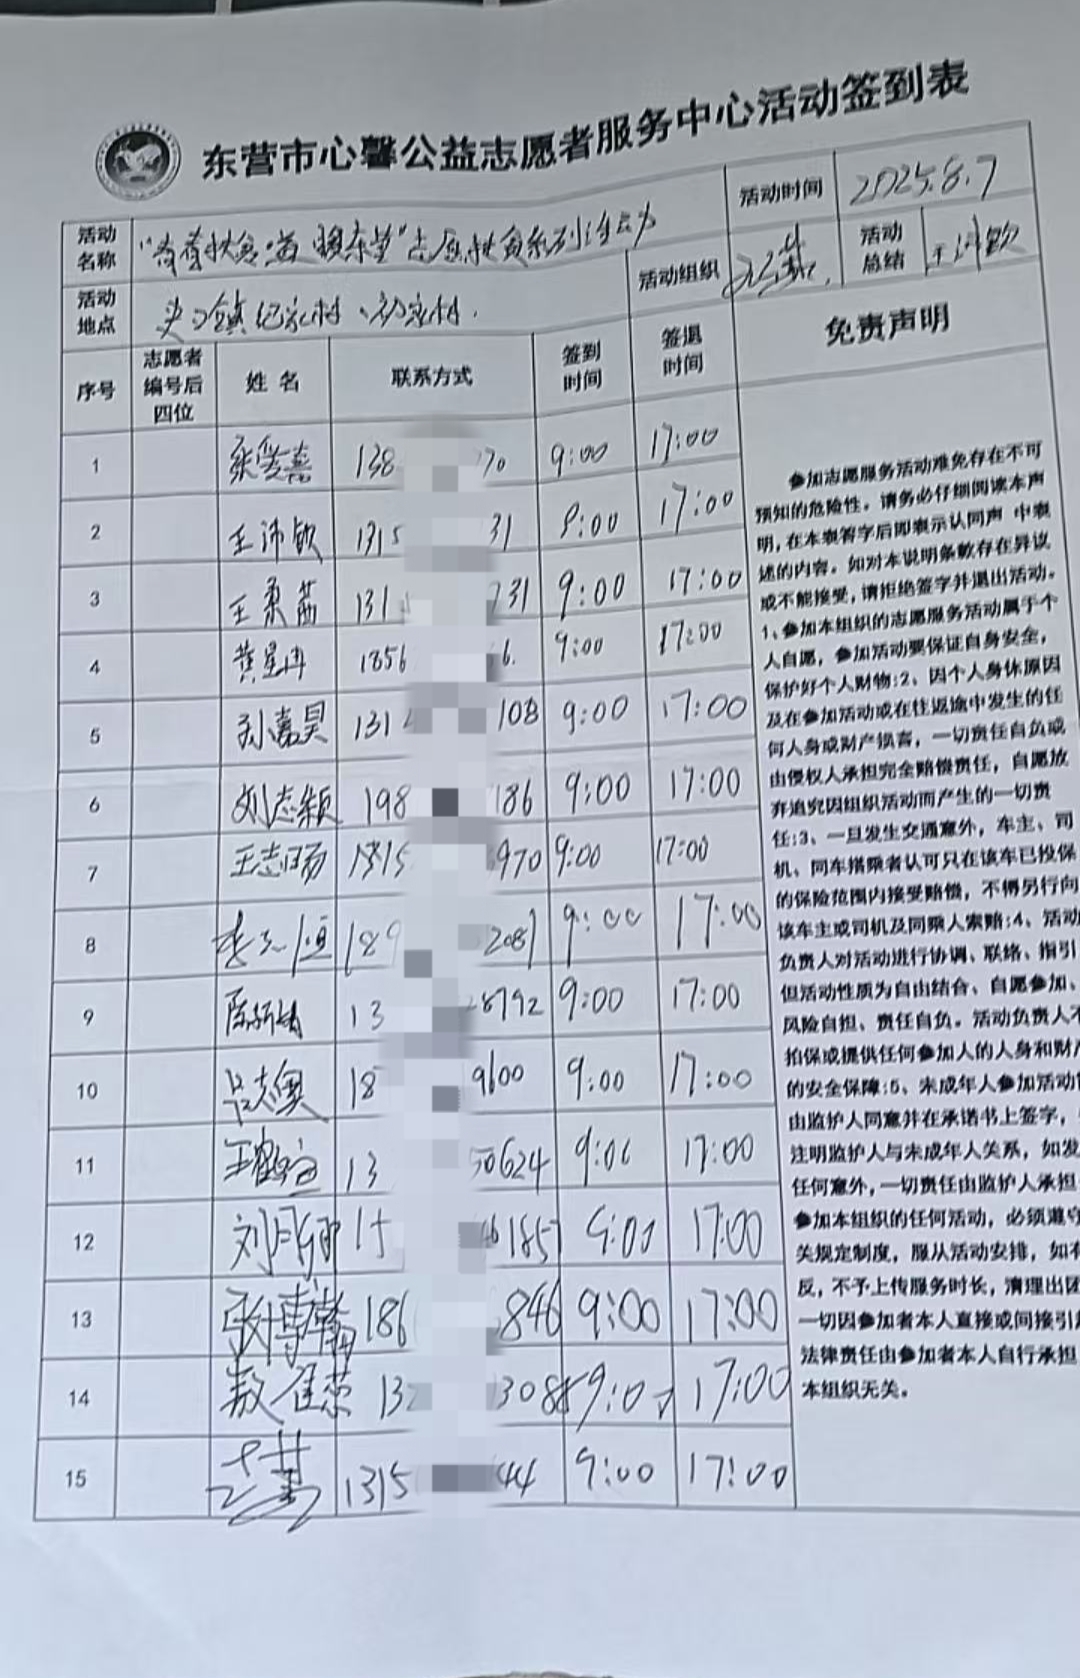 东营市心馨公益志愿者服务中心活动签到表
活动名称 志愿扶贫系列活动 活动时间 2025.8.7
活动地点 史口镇纪家村、 活动组织 活动总结 王沛钦
序号 志愿者编号后四位 姓名 联系方式 签到时间 签退时间 免责声明
1 138 70 9:00 17:00
2 王沛钦 1315 31 9:00 17:00
3 王柔茜 131 731 9:00 17:00
4 黄星冉 1856 6. 9:00 17:00
5 孙嘉昊 131 108 9:00 17:00
6 刘志颖 198 186 9:00 17:00
7 王志 1515 970 9:00 17:00
8 189 2081 9:00 17:00
9 陈 13 28792 9:00 17:00
10 吕志奥 18 9600 9:00 17:00
11 王 13 50624 9:00 17:00
12 刘 15 185 9:00 17:00
13 张博 186 846 9:00 17:00
14 132 308 9:00 17:00
15 1315 44 9:00 17:00
参加志愿服务活动难免存在不可
预知的危险性。请务必仔细阅读本声
明,在本表签字后即表示认同声 中表
述的内容。如对本说明条款存在异议
或不能接受,请拒绝签字并退出活动。
1、参加本组织的志愿服务活动属于个
人自愿,参加活动要保证自身安全,
保护好个人财物;2、因个人身体原因
及在参加活动或在往返途中发生的任
何人身或财产损害,一切责任自负或
由侵权人承担完全赔偿责任,自愿放
弃追究因组织活动而产生的一切责
任;3、一旦发生交通意外,车主、司
机、同车搭乘者认可只在该车已投保
的保险范围内接受赔偿,不得另行向
该车主或司机及同乘人索赔;4、活动
负责人对活动进行协调、联络、指引
但活动性质为自由结合、自愿参加、
风险自担、责任自负。活动负责人不
担保或提供任何参加人的人身和财产
的安全保障;5、未成年人参加活动
由监护人同意并在承诺书上签字,
注明监护人与未成年人关系,如发
任何意外,一切责任由监护人承担
参加本组织的任何活动,必须遵守
关规定制度,服从活动安排,如有
反,不予上传服务时长,清理出团
一切因参加者本人直接或间接引起
法律责任由参加者本人自行承担
本组织无关。